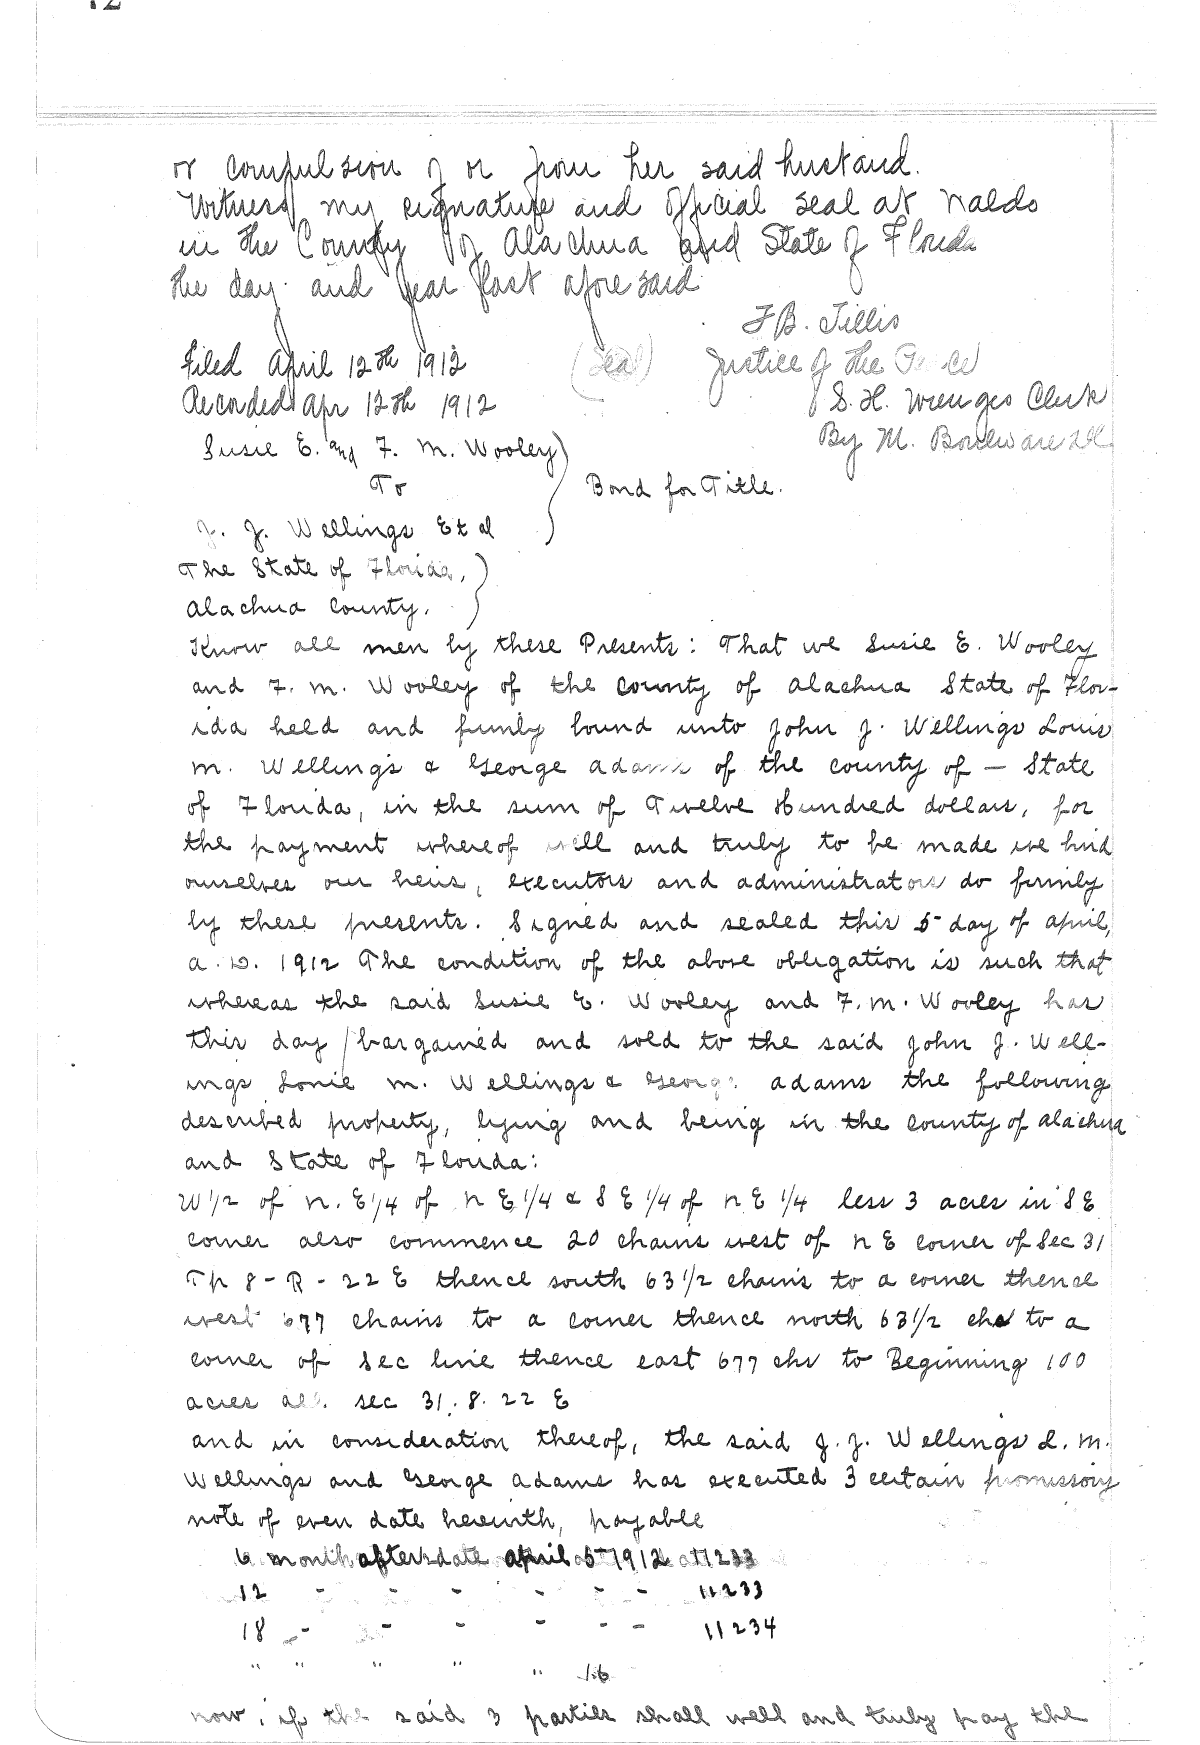 or compulsion of or from her said husband.
Witness my signature and official seal at Waldo
in the County of Alachua and State of Florida
the day and year last aforesaid
F B. Tillis
Filed April 12th 1912 (Seal) Justice of the Peace
Recorded Apr 12th 1912 S. H. Wienges Clerk
By M. Boulware
Susie E. and F. M. Wooley
To
Bond for Title.
J. J. Wellings Et al
The State of Florida,
Alachua County.
Know all men by these Presents: That we Susie E. Wooley
and F. M. Wooley of the County of Alachua State of Flor-
ida held and firmly bound unto John J. Wellings Louis
M. Wellings & George Adams of the county of — State
of Florida, in the sum of Twelve Hundred dollars, for
the payment whereof well and truly to be made we bind
ourselves our heirs, executors and administrators do firmly
by these presents. Signed and sealed this 5 day of April,
A. D. 1912 The condition of the above obligation is such that
whereas the said Susie E. Wooley and F. M. Wooley has
this day bargained and sold to the said John J. Well-
ings Louie M. Wellings & George Adams the following
described property, lying and being in the county of Alachua
and State of Florida:
W 1/2 of N. E 1/4 of N E 1/4 & S E 1/4 of N E 1/4 less 3 acres in S E
corner also commence 20 chains west of N E corner of Sec 31
Tp 8 - R - 22 E thence south 63 1/2 chains to a corner thence
west 677 chains to a corner thence north 63 1/2 chs to a
corner of Sec line thence east 677 chs to Beginning 100
acres all. sec 31. 8. 22 E
and in consideration thereof, the said J. J. Wellings L. M.
Wellings and George Adams has executed 3 certain promissory
note of even date herewith, payable
6 month after date April 5 1912 233
12 - - - - - - 233
18 - - - - - - 234
" " " " "
now, if the said 3 parties shall well and truly pay the